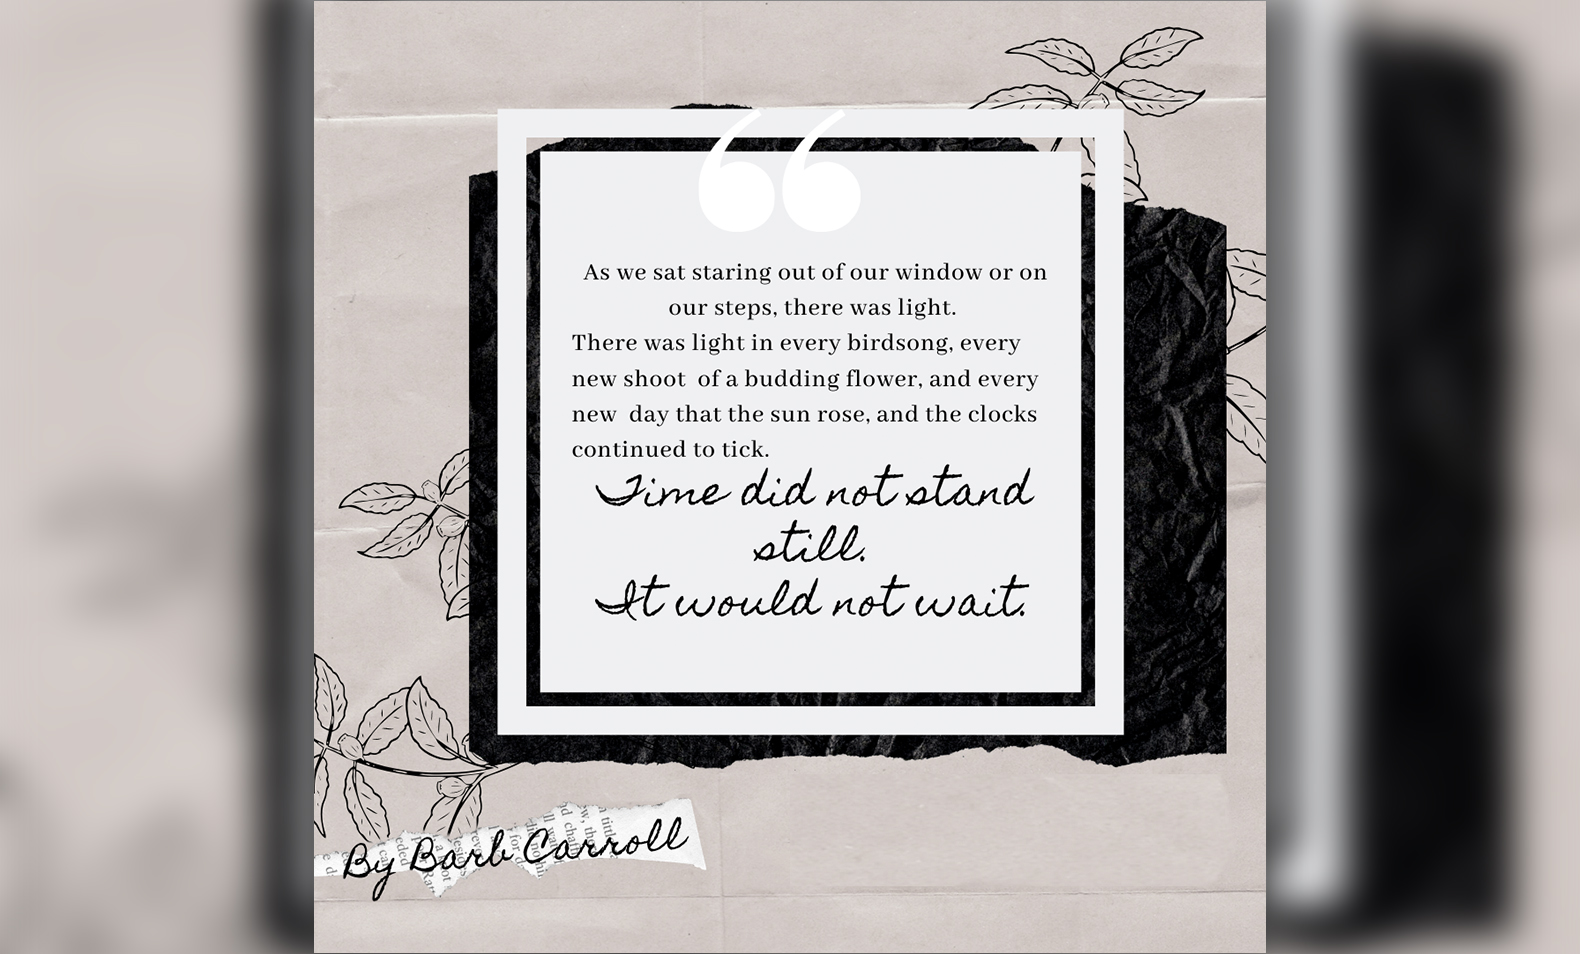 “
As we sat staring out of our window or on
our steps, there was light.
There was light in every birdsong, every
new shoot  of a budding flower, and every
new  day that the sun rose, and the clocks
continued to tick.
Time did not stand
still.
It would not wait.
By Barb Carroll